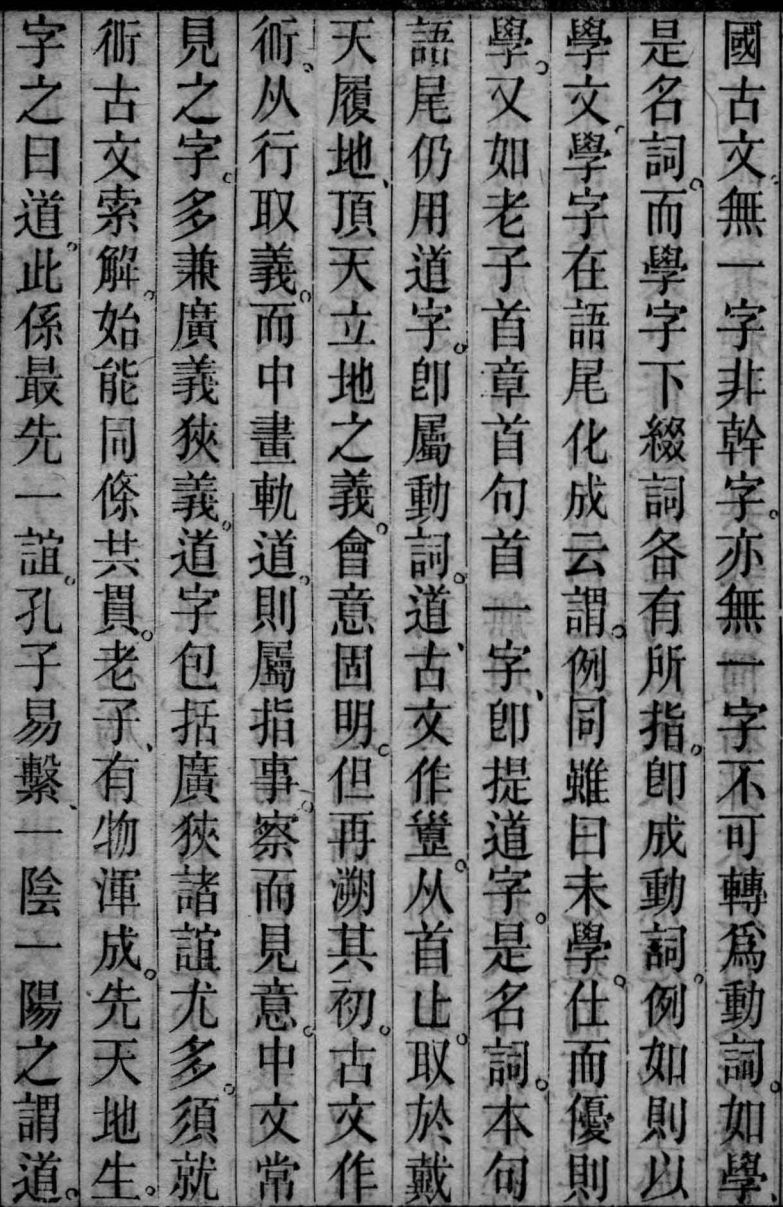 國古文。無一字非幹字。亦無一字不可轉爲動詞。如學、
是名詞。而學字下綴詞各有所指。卽成動詞。例如則以
學文。學字在語尾化成云謂。例同雖曰未學。仕而優則
學。又如老子首章首句首一字、卽提道字。是名詞。本句
語尾仍用道字。卽屬動詞。道、古文作。从首止。取於戴
天履地、頂天立地之義。會意固明。但再溯其初。古文作
。从行取義。而中畫軌道。則屬指事。察而見意。中文常
見之字。多兼廣義狹義。道字包括廣狹諸誼尤多。須就
古文索解。始能同條共貫。老子、有物渾成。先天地生。
字之曰道。此係最先一誼。孔子易繫、一陰一陽之謂道。